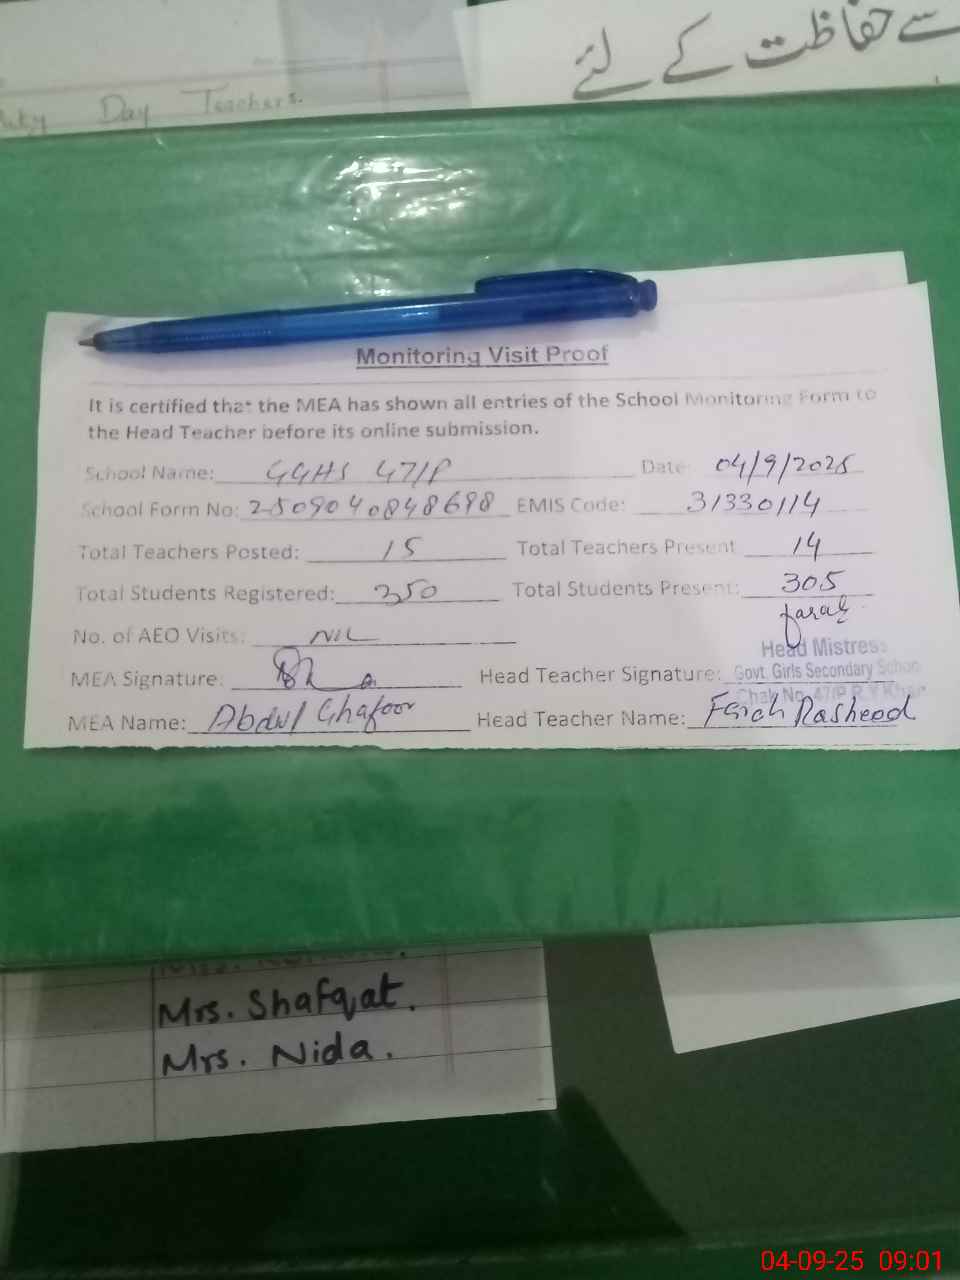 سے حفاظت کے لئے
Day Teachers.
Monitoring Visit Proof
It is certified that the MEA has shown all entries of the School Monitoring Form to
the Head Teacher before its online submission.
School Name: GGHS 47/P Date: 04/9/2025
School Form No: 2509040848698 EMIS Code: 31330114
Total Teachers Posted: 15 Total Teachers Present 14
Total Students Registered: 350 Total Students Present: 305
No. of AEO Visits: NIL
Head Mistress
MEA Signature: Head Teacher Signature: Govt. Girls Secondary School
Chak No. 47/P R.Y Khan
MEA Name: Abdul Ghafoor Head Teacher Name: Farah Rasheed
Mrs. Shafqat.
Mrs. Nida.
04-09-25 09:01